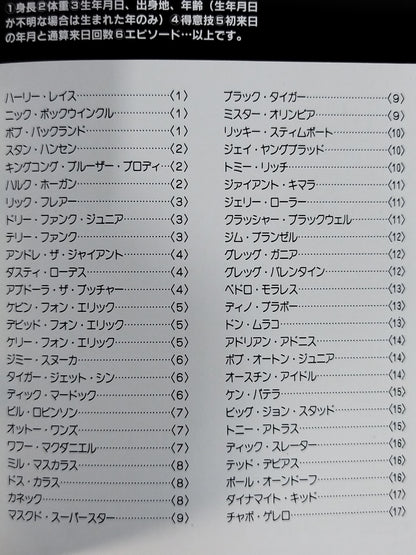 ①身長②体重③生年月日、出身地、年齢(生年月日
が不明な場合は生まれた年のみ)④得意技⑤初来日
の年月と通算来日回数⑥エピソード…以上です。
ハーリー・レイス……………〈1〉
ニック・ボックウインクル……………〈1〉
ボブ・バックランド……………〈1〉
スタン・ハンセン……………〈2〉
キングコング・ブルーザー・ブロディ…〈2〉
ハルク・ホーガン……………〈2〉
リック・フレアー……………〈3〉
ドリー・ファンク・ジュニア……………〈3〉
テリー・ファンク……………〈3〉
アンドレ・ザ・ジャイアント……………〈4〉
ダスティ・ローデス……………〈4〉
アブドーラ・ザ・ブッチャー……………〈4〉
ケビン・フォン・エリック……………〈5〉
デビッド・フォン・エリック……………〈5〉
ケリー・フォン・エリック……………〈5〉
ジミー・スヌーカ……………〈6〉
タイガー・ジェット・シン……………〈6〉
ディック・マードック……………〈6〉
ビル・ロビンソン……………〈7〉
オットー・ワンズ……………〈7〉
ワフー・マクダニエル……………〈7〉
ミル・マスカラス……………〈8〉
ドス・カラス……………〈8〉
カネック……………〈8〉
マスクド・スーパースター……………〈9〉
ブラック・タイガー……………〈9〉
ミスター・オリンピア……………〈9〉
リッキー・スティムボート……………〈10〉
ジェイ・ヤングブラッド……………〈10〉
トミー・リッチ……………〈10〉
ジャイアント・キマラ……………〈11〉
ジェリー・ローラー……………〈11〉
クラッシャー・ブラックウェル……………〈11〉
ジム・ブランゼル……………〈12〉
グレッグ・ガニア……………〈12〉
グレッグ・バレンタイン……………〈12〉
ペドロ・モラレス……………〈13〉
ディノ・ブラボー……………〈13〉
ドン・ムラコ……………〈13〉
アドリアン・アドニス……………〈14〉
ボブ・オートン・ジュニア……………〈14〉
オースチン・アイドル……………〈14〉
ケン・パテラ……………〈15〉
ビッグ・ジョン・スタッド……………〈15〉
トニー・アトラス……………〈15〉
ディック・スレーター……………〈16〉
テッド・デビアス……………〈16〉
ポール・オーンドーフ……………〈16〉
ダイナマイト・キッド……………〈17〉
チャボ・ゲレロ……………〈17〉